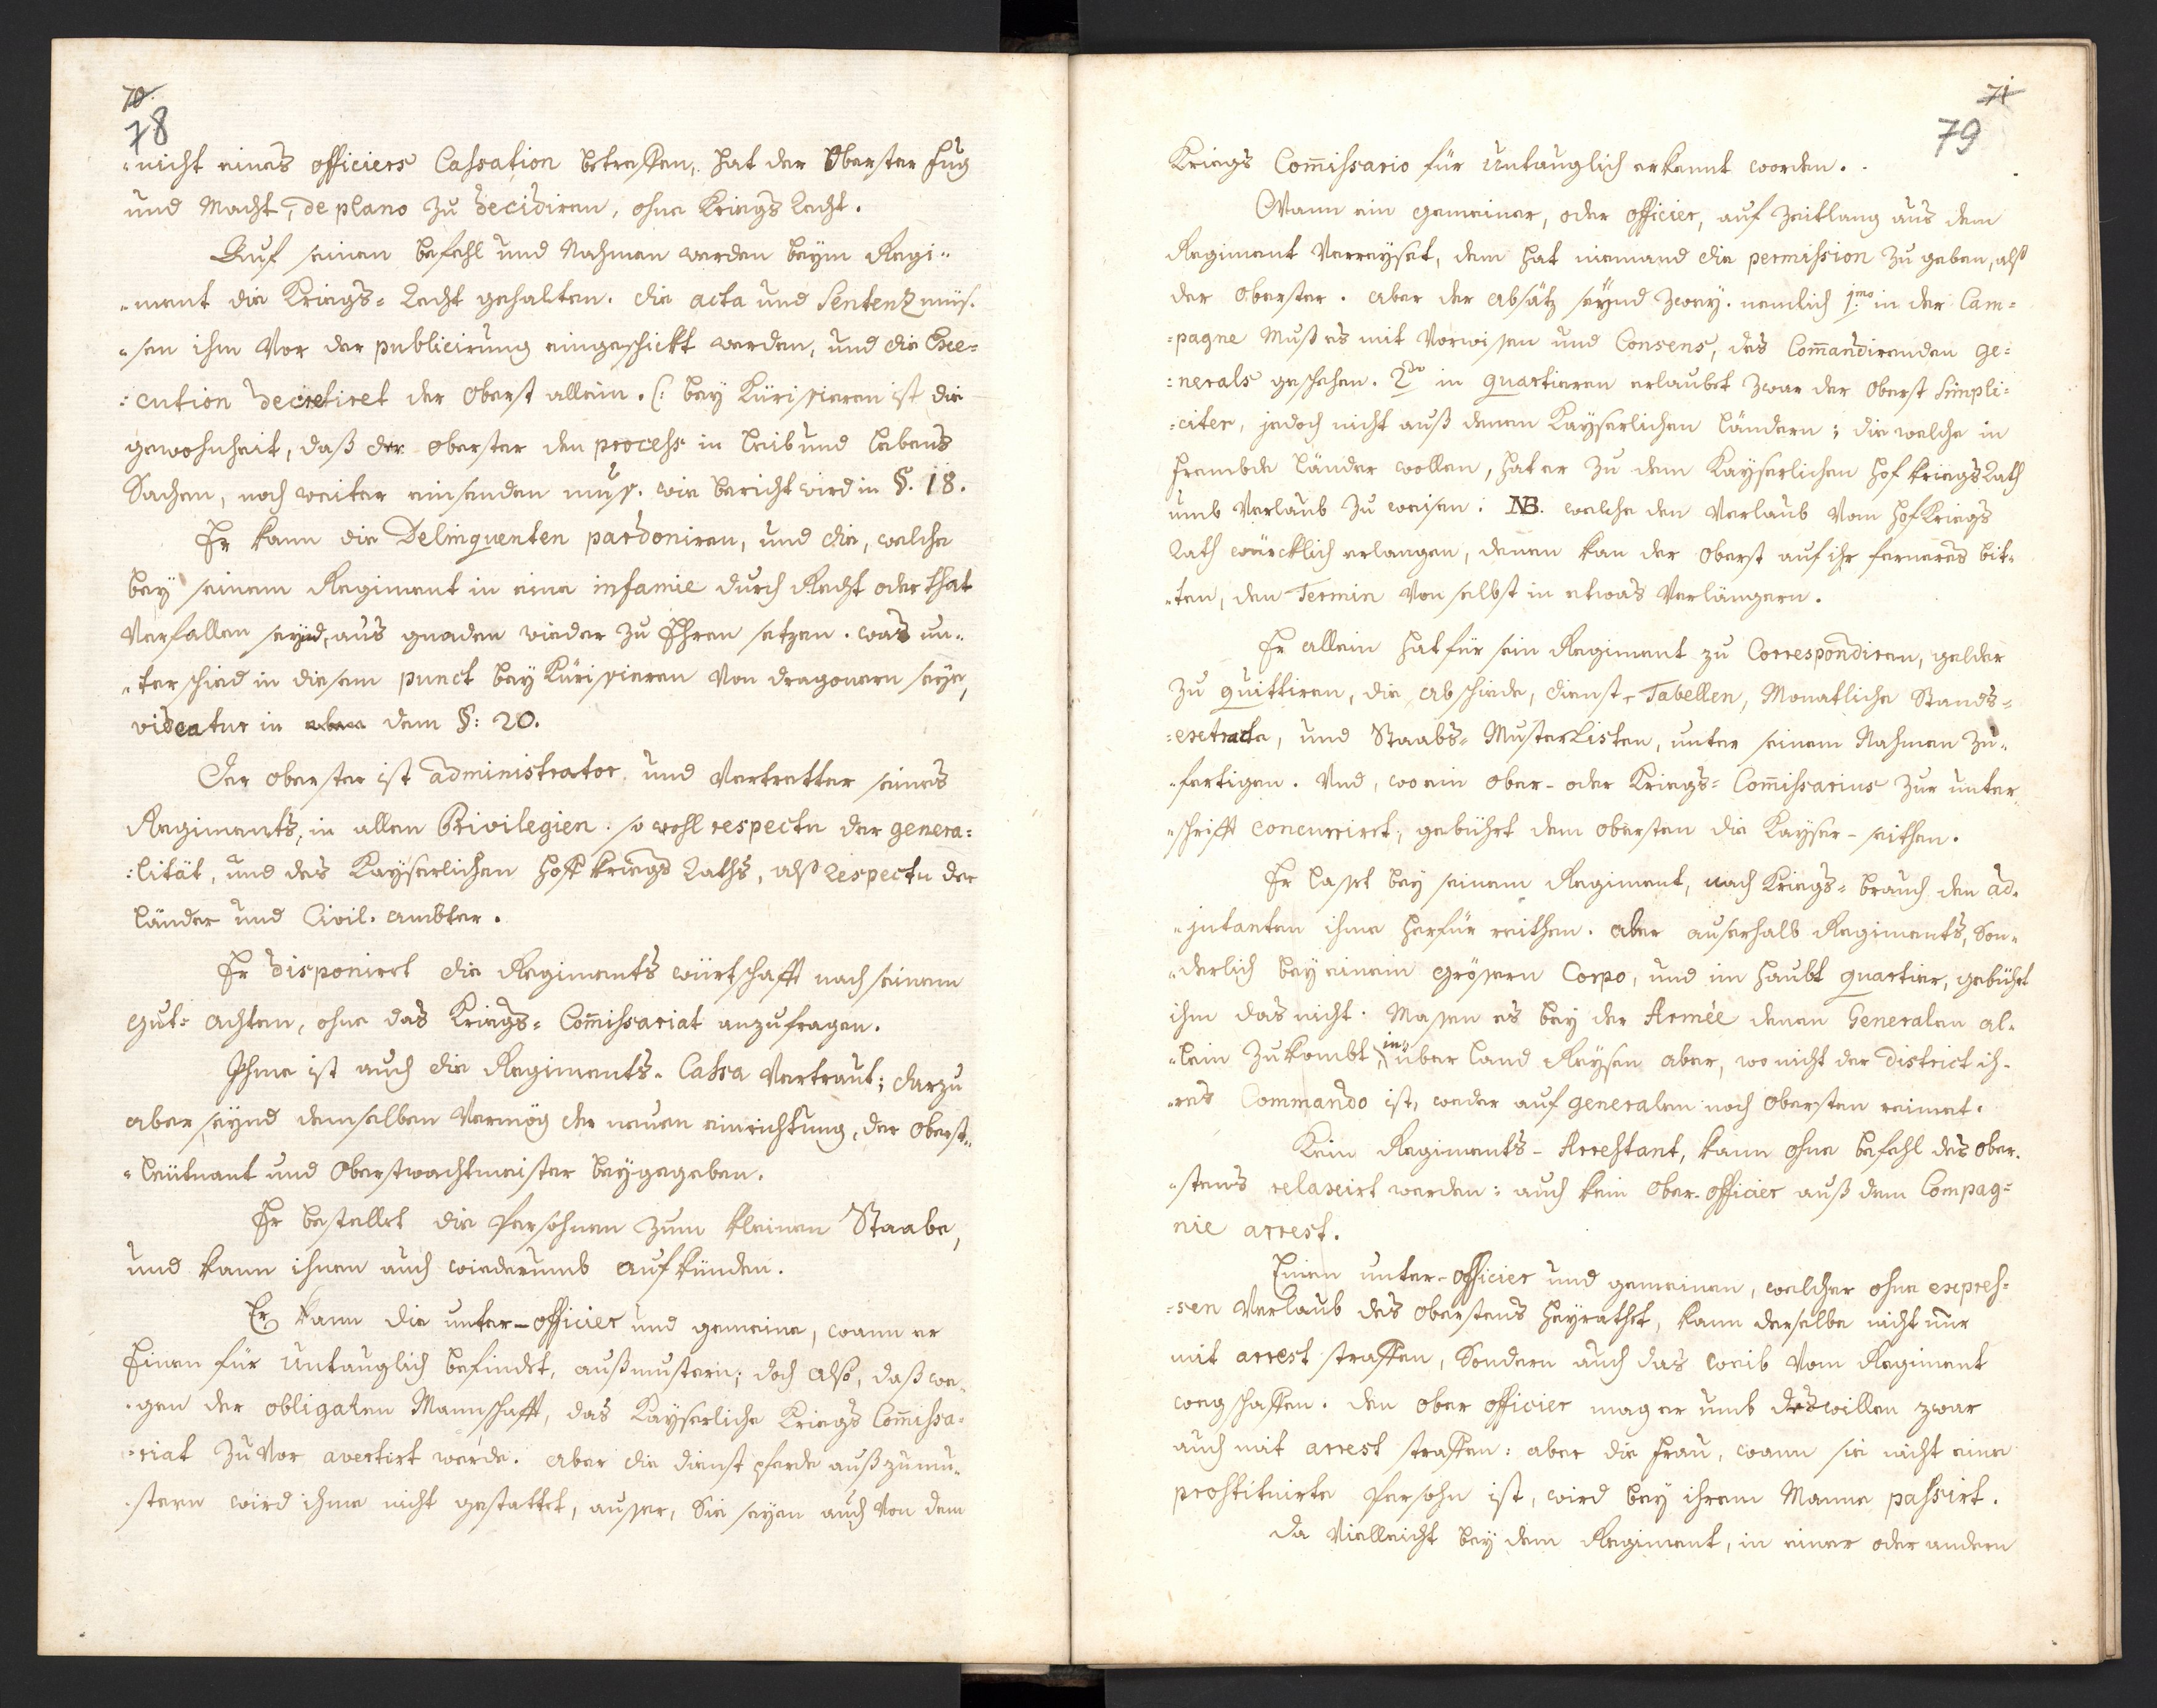 70.
78
"nicht eines officiers Cassation betreffen, hat der Oberster fug
und Macht, de plano zu decidiren, ohne Kriegs Recht.
Auf seinen befehl und Nahmen werden beym Regi"
"ment die Kriegs= Recht gehalten. die acta und Sentenz müs.
"sen ihm vor der publicirung eingeschickt werden, und die Exe=
:cution decretiret der Oberst allein. (: bey Kürissieren ist die
gewohnheit, daß der Obrister den process in leib und lebens
Sachen, noch weiter einsenden muß. wie bericht wird in §. 18.
Er kann die Delinquenten pardoniren, und die, welche
bey seinem Regiment in eine infamie durch Recht oder that
Verfallen seynd, aus gnaden wieder zu Ehren setzen. was un"
"terschied in diesem punct bey Kürissieren von dragonern seye,
videatur in dem §: 20.
Der Obrister ist administrator und Vertretter seines
Regiments, in allen Privilegien. so wohl respectu der genera=
:lität, und des Kayserlichen Hoff kriegs Raths, alß respectu der
länder und Civil. ambter.
Er disponiret die Regiments würtschafft nach seinem
gut= achten, ohne das Kriegs= Commissariat anzufragen.
Ihme ist auch die Regiments- Cassa Vertraut; darzu
aber seynd demselben vermög der neuen einrichtung, der Oberst"
"leutnant und Oberstwachtmeister beygegeben.
Er bestellet die Persohnen zum kleinen Staabe,
und kann ihnen auch wiederumb aufkünden.
Er kann die unter-officier und gemeine, wann er
Einen für untauglich befindet, außmustern; doch also, daß we"
"gen der obligaten Mannschafft, das Kayserliche Kriegs Commissa=
"riat zuvor avertirt werde. aber die dienst pferde außzumu"
"stern wird ihme nicht gestattet, ausser, Sie seyen auch von dem
71
79
Kriegs Commissario für untauglich erkannt worden.
Wann ein gemeiner, oder officier, auf zeitlang aus dem
Regiment Verreyset, dem hat niemand die permission zu geben, alß
der Oberster. aber der absätz seynd zwey. nemlich 1mo in der Cam=
=pagne Muß es mit vorwissen und Consens, des Commandirenden Ge=
:nerals geschehen. 2do in quartieren erlaubet zwar der Oberst Simpli=
:citer, jedoch nicht auß denen Kayserlichen Ländern; die welche in
frembde länder wollen, hat er zu dem Kayserlichen Hof kriegs Rath
umb verlaub zu weisen. NB. welche den verlaub vom Hof Kriegs
Rath würcklich erlangen, denen kan der Oberst auf ihr ferneres bit"
"ten, den Termin von selbst in etwas verlängern.
Er allein hat für sein Regiment zu Correspondiren, gelder
zu quittiren, die abschiede, dienst- Tabellen, Monatliche Stands=
=extracte, und Staabs= Musterlisten, unter seinem Nahmen zu"
"fertigen. Und, wo ein Ober- oder Kriegs= Commissarius zur unter"
"schrifft concurriret, gebührt dem obersten die Kayser- seithen.
Er lasset bey seinem Regiment, nach Kriegs= brauch den ad"
"jutanten ihme herfür reithen. aber ausserhalb Regiments, Son"
"derlich bey einem grössern Corpo, und im haubt quartier, gebührt
ihm das nicht. Massen es bey der Armée denen Generalen al"
"lein Zukombt, in über land Reysen aber, wo nicht der district ih"
"res Commando ist, weder auf generalen noch Obersten reimet.
Kein Regiments- Arrestant, kann ohne befehl des Ober"
"stens relaxirt werden: auch kein Ober-officier auß dem Compag=
nie arrest.
Einen unter-officier und gemeinen, welcher ohne expres=
=sen verlaub des Oberstens heyrathet, kann derselbe nicht nur
mit arrest straffen, Sondern auch das weib vom Regiment
weg schaffen. den Ober officier mag er umb deswillen zwar
auch mit arrest straffen: aber die Frau, wann sie nicht eine
prostituirte Persohn ist, wird bey ihrem Manne passirt.
Da Vielleicht bey dem Regiment, in einer oder andern